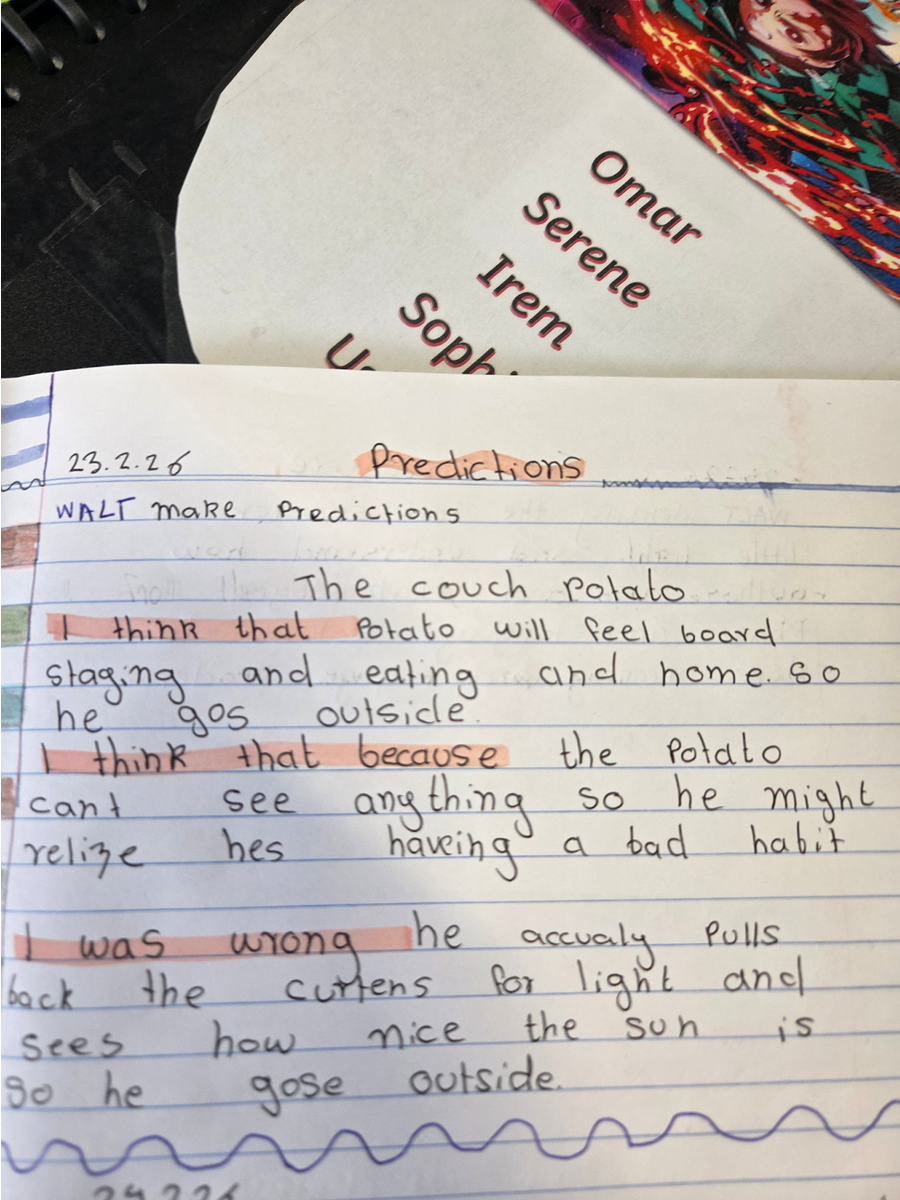 Omar
Serene
Irem
Soph
23.2.26 Predictions
WALT make Predictions
The couch potato
I think that Potato will feel board
staging and eating and home. so
he gos outside.
I think that because the Potato
cant see anything so he might
relize hes haveing a bad habit
I was wrong he accualy pulls
back the curtens for light and
sees how nice the sun is
so he gose outside.